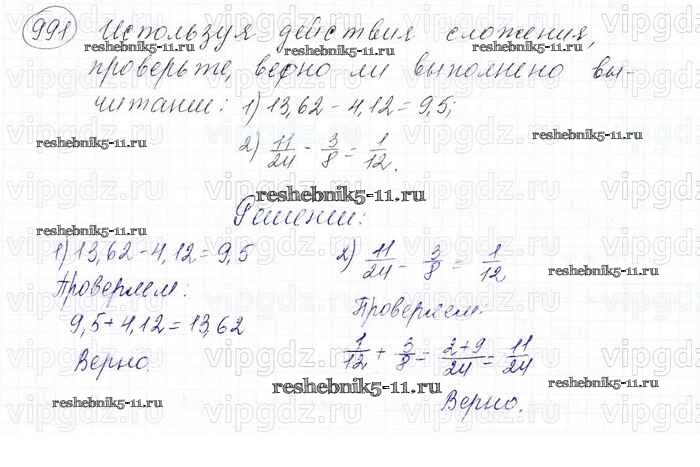 991 Используя действия сложения,
проверьте, верно ли выполнено вы-
читании: 1) 13,62 - 4,12 = 9,5;
2) 11/24 - 3/8 = 1/12.
Решении:
1) 13,62 - 4,12 = 9,5
Проверяем:
9,5 + 4,12 = 13,62
Верно.
2) 11/24 - 3/8 = 1/12
Проверяем:
1/12 + 3/8 = 2+9/24 = 11/24
Верно.
reshebnik5-11.ru
reshebnik5-11.ru
reshebnik5-11.ru
reshebnik5-11.ru
reshebnik5-11.ru
reshebnik5-11.ru
reshebnik5-11.ru
reshebnik5-11.ru
reshebnik5-11.ru
reshebnik5-11.ru
vipgdz.ru